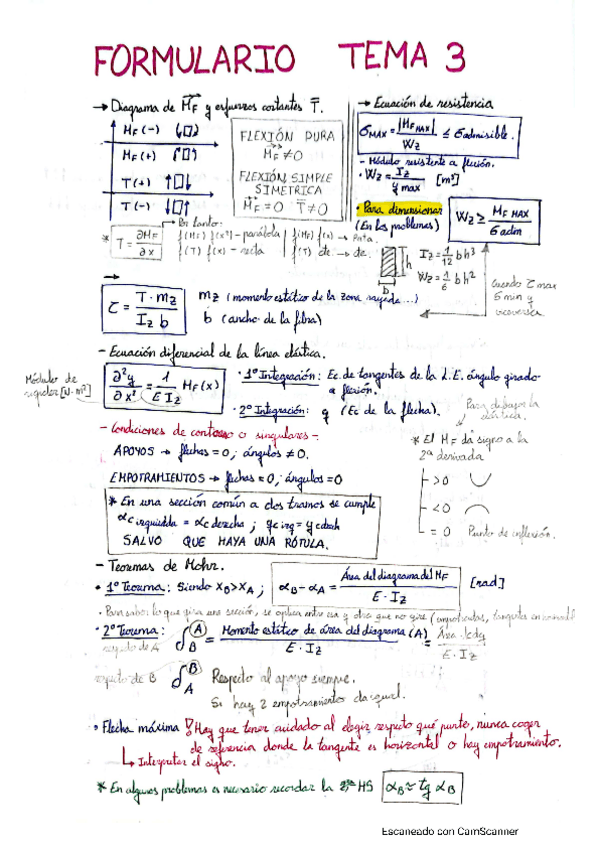 FORMULARIO TEMA 3
→ Diagrama de M_F y esfuerzos cortantes T.
M_F (-)
M_F (+)
T (+) ↑▯↓
T (-) ↓▯↑
FLEXIÓN PURA
M_F ≠ 0
FLEXIÓN SIMPLE
SIMETRICA
M_F = 0 T ≠ 0
* T = ∂M_F / ∂x
→ Por tanto:
f (M_F) f(x²) - parábola
f (T) f(x) - recta
f (M_F) f(x) → Pnta.
f (T) cte. → cte.
→ Ecuación de resistencia
σ_MAX = |M_F MAX| / W_Z ≤ σ admisible.
- Módulo resistente a flexión.
· W_Z = I_Z / y max [m³]
· Para dimensionar
(En los problemas)
W_Z ≥ M_F MAX / σ adm
h
b
I_Z = 1/12 b h³
W_Z = 1/6 b h²
Cuando τ max
σ min y
viceversa
→
τ = T · m_Z / I_Z b
m_Z (momento estático de la zona rayada...)
b (ancho de la fibra)
- Ecuación diferencial de la línea elástica.
Módulo de
rigidez [N·m²]
∂²y / ∂x² = 1 / E I_Z M_F (x)
· 1º Integración: Ec. de tangentes de la L.E. ángulo girado
a flexión.
· 2º Integración: y (Ec de la flecha).
Para dibujar la
elástica.
- Condiciones de contorno o singulares -
APOYOS → flechas = 0; ángulos ≠ 0.
EMPOTRAMIENTOS → flechas = 0; ángulos = 0
* El M_F da signo a la
2ª derivada
> 0 ∪
< 0 ∩
= 0 Punto de inflexión.
* En una sección común a dos tramos se cumple
α_C izquierda = α_C derecha ; y_C izq = y_C dcha
SALVO QUE HAYA UNA RÓTULA.
- Teoremas de Mohr.
· 1º Teorema: Siendo X_B > X_A ; α_B - α_A = Área del diagrama del M_F / E · I_Z [rad]
· Para saber lo que gira una sección, se aplica entre esa y otra que no gire (empotradas, tangentes en
· 2º Teorema:
respecto de A
δ_B^(A) = Momento estático de área del diagrama (A) / E · I_Z = Área · x_cdg / E · I_Z
respecto de B δ_A^(B) Respecto al apoyo siempre.
Si hay 2 empotramiento da igual.
· Flecha máxima ! Hay que tener cuidado al elegir respecto qué punto, nunca coger
de referencia donde la tangente es horizontal o hay empotramiento.
↳ Interpretar el signo.
* En algunos problemas es necesario recordar la HS α_B ≈ tg α_B
Escaneado con CamScanner